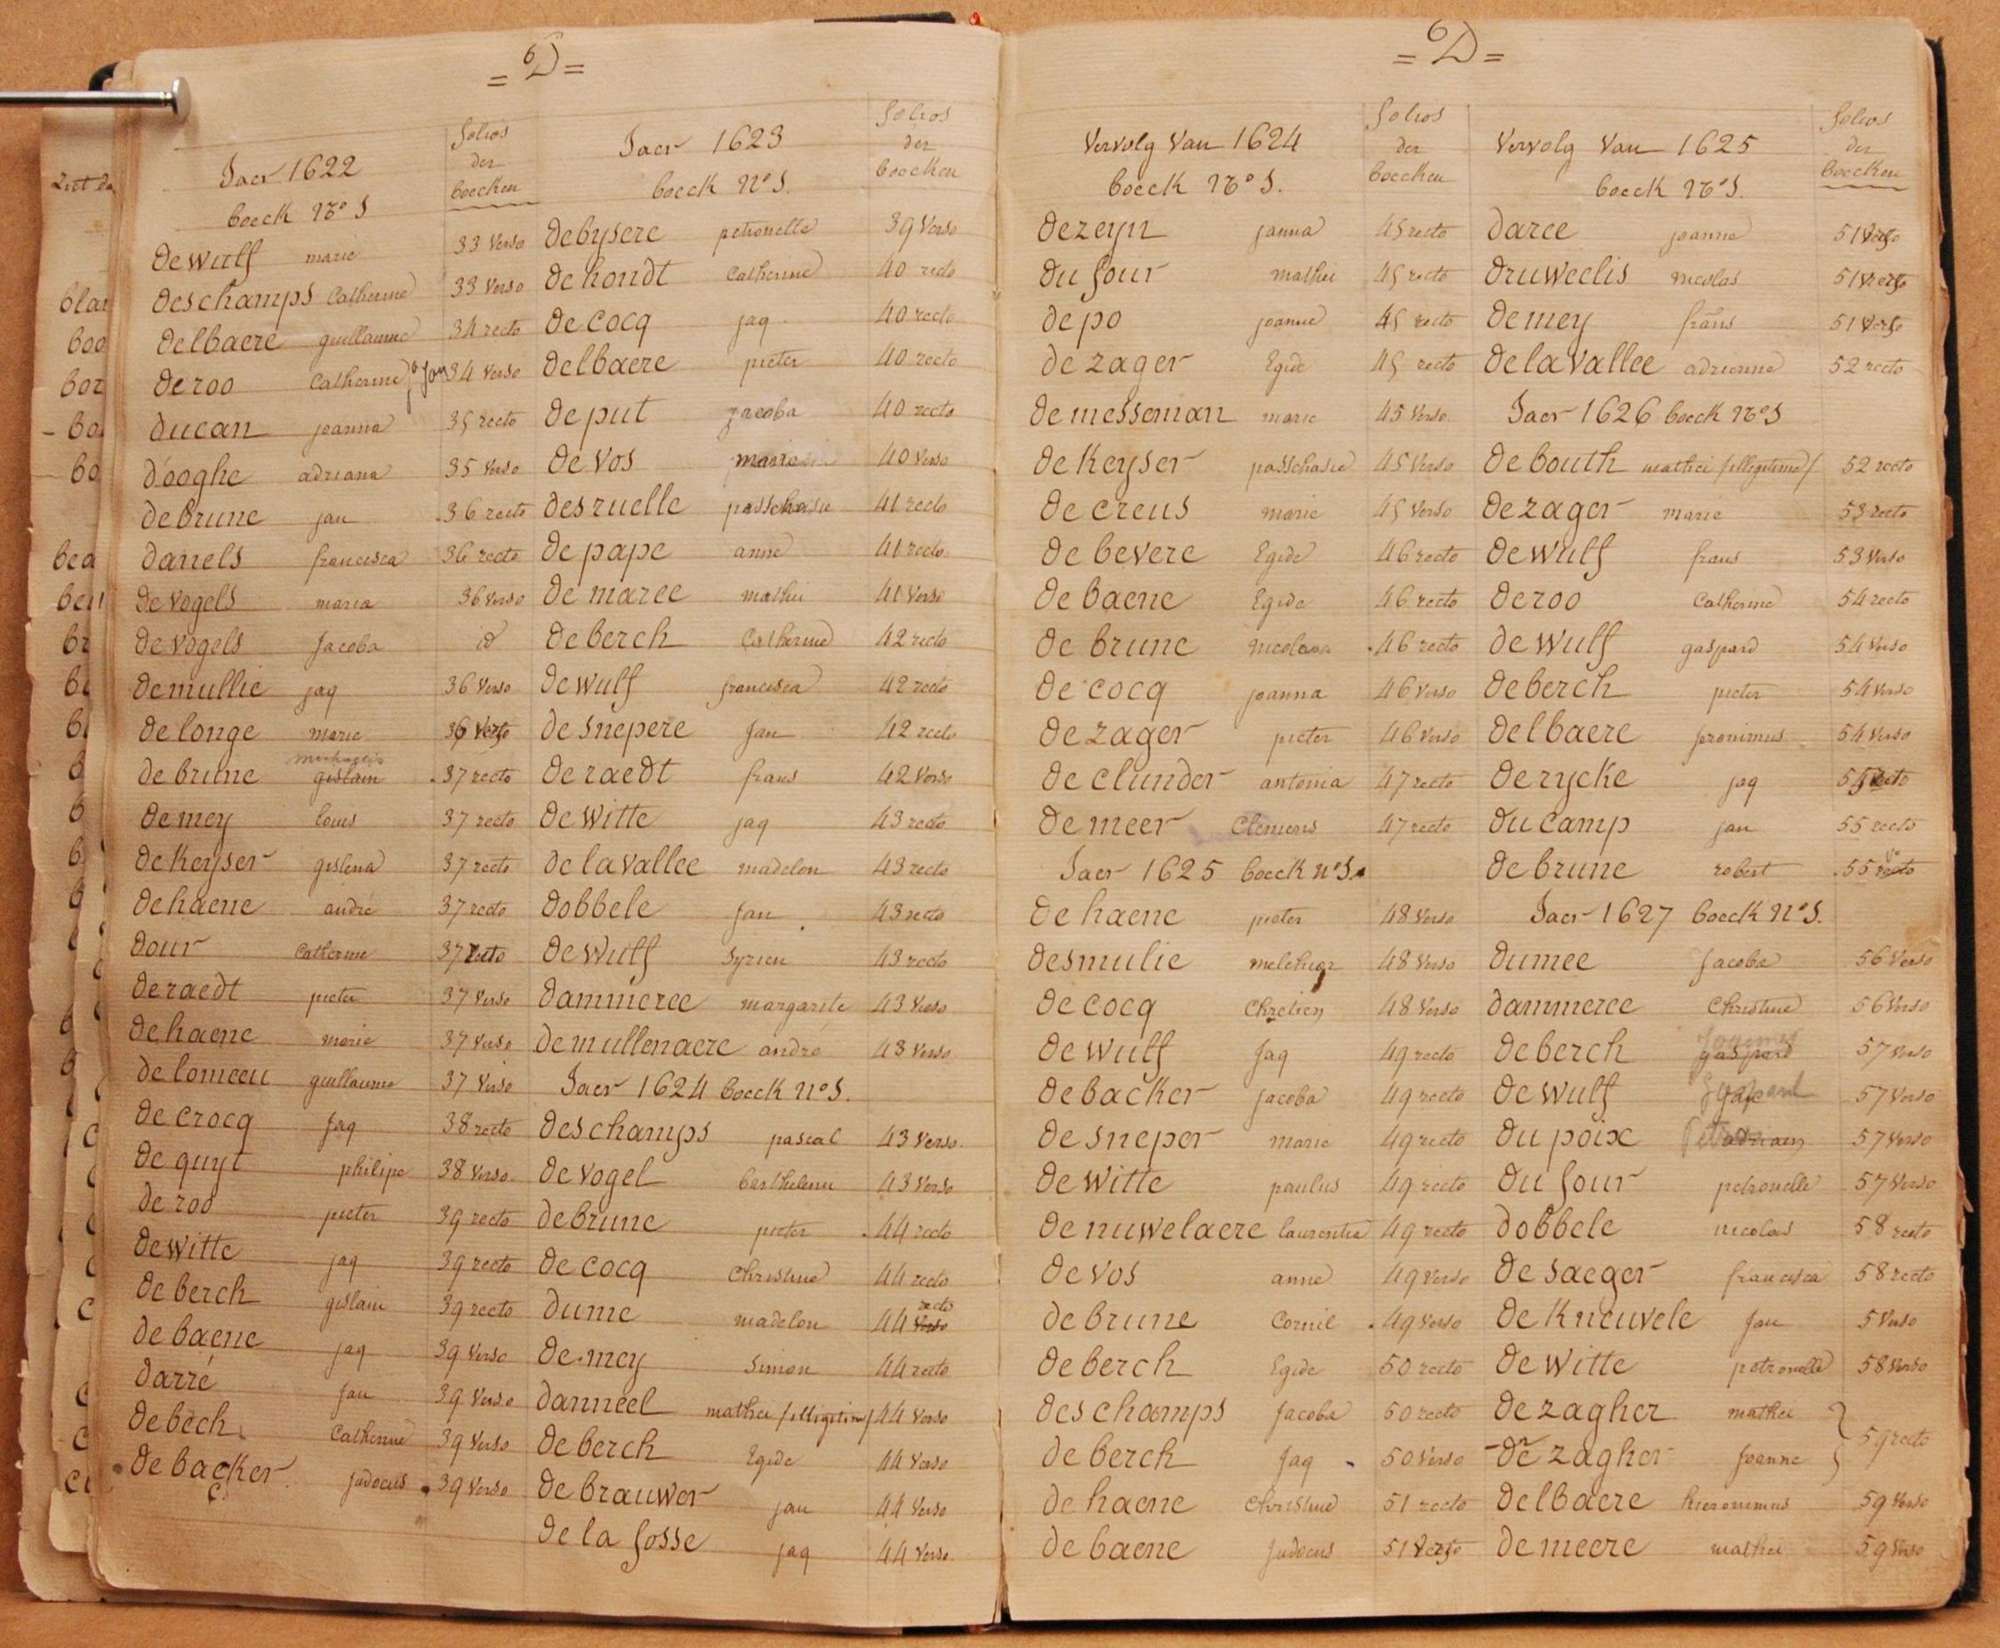 = D =
Jaer 1622
boeck No 1
folios
der
boecken
dewulf marie 33 verso
deschamps Catherine 33 verso
delbaere guillaume 34 recto
deroo Catherine 34 verso
ducan joanna 35 recto
d'ooghe adriana 35 verso
debrune jan 36 recto
daniels francisca 36 recto
devogels maria 36 verso
devogels Jacoba id
demullie jaq 36 verso
delonge marie 36 verso
debrune gislain 37 recto
demey louis 37 recto
dekeyser gislena 37 recto
dehaene andré 37 recto
dour Catherine 37 recto
deraedt pieter 37 verso
dehaene marie 37 verso
delomeeu guillaume 37 verso
decrocq jaq 38 recto
dequyt philipe 38 verso
deroo pieter 39 recto
dewitte jaq 39 recto
deberch gislain 39 recto
debaene jaq 39 verso
darré jan 39 verso
debéch Catherine 39 verso
debacker judocus 39 verso
Jaer 1623
boeck No 1.
folios
der
boecken
debysere petronelle 39 verso
dehondt Catherine 40 recto
decocq jaq 40 recto
delbaere pieter 40 recto
deput jacoba 40 recto
devos maria 40 verso
desruelle passchasie 41 recto
depape anne 41 recto
demaree mathei 41 verso
deberch Catherine 42 recto
dewulf francisca 42 recto
desnepere Jan 42 recto
deraedt frans 42 verso
dewitte jaq 43 recto
delavallee madelon 43 recto
dobbele Jan 43 recto
dewulf Syrien 43 recto
dammeree margarite 43 verso
demullenaere andré 43 verso
Jaer 1624 boeck No 1.
deschamps pascal 43 verso
devogel barthelemi 43 verso
debrune pieter 44 recto
decocq Christine 44 recto
dume madelon 44 verso recto
demey Simon 44 recto
danneel mathei /illegitime/ 44 verso
deberch Egide 44 verso
debrauwer jan 44 verso
de la fosse jaq 44 verso
= D =
Vervolg van 1624
boeck No 1.
folios
der
boecken
dezeyn janna 45 recto
dufour mathei 45 recto
depo joanne 45 recto
dezager Egide 45 recto
demesseman marie 45 verso
dekeyser passchasie 45 verso
decreus marie 45 verso
debevere Egide 46 recto
debaene Egide 46 recto
debrune nicolaas 46 recto
decocq joanna 46 verso
dezager pieter 46 verso
declunder antonia 47 recto
demeer Clemens 47 recto
Jaer 1625 boeck no 1.
dehaene pieter 48 verso
desmulie melchior 48 verso
decocq Chretien 48 verso
dewulf Jaq 49 recto
debacker Jacoba 49 recto
desneper marie 49 recto
dewitte paulus 49 recto
denuwelaere laurentia 49 recto
devos anne 49 verso
debrune Cornil 49 verso
deberch Egide 50 recto
deschamps Jacoba 50 recto
deberch Jaq 50 verso
dehaene Christine 51 recto
debaene Judocus 51 verso
Vervolg van 1625
boeck No 1.
folios
der
boecken
daree joanne 51 verso
druweelis nicolas 51 verso
demey frans 51 verso
delavallee adrienne 52 recto
Jaer 1626 boeck No 1
debouth mathei /illegitime/ 52 recto
dezager marie 53 recto
dewulf frans 53 verso
deroo Catherine 54 recto
dewulf gaspard 54 verso
deberch pieter 54 verso
delbaere jeronimus 54 verso
derycke jaq 55 recto
ducamp jan 55 recto
debrune robert 55 recto vo
Jaer 1627 boeck No 1.
dumee Jacoba 56 verso
dammeree Christine 56 verso
deberch gaspard 57 verso
dewulf Gaspard 57 verso
dupoix 57 verso
dufour petronelle 57 verso
dobbele nicolas 58 recto
desaeger francisca 58 recto
dekneuvele Jan 5 verso
dewitte petronelle 58 verso
dezagher mathei
dezagher Joanne } 59 recto
delbaere hieronimus 59 verso
demeere mathei 59 verso